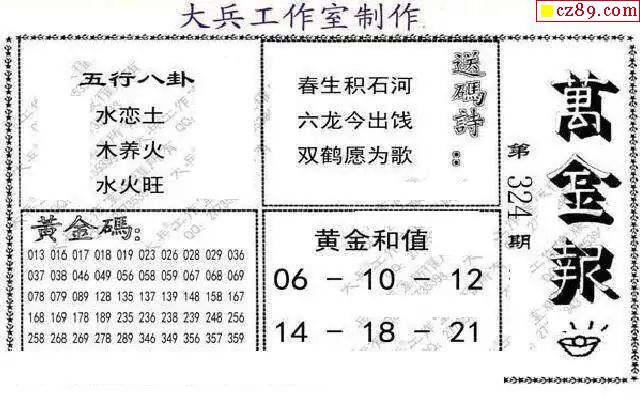 大兵工作室制作
cz89.com
五行八卦
水恋土
木养火
水火旺
春生积石河
六龙今出饯
双鹤愿为歌
送碼詩：
萬金報
第324期
黃金碼：
013 016 017 018 019 023 026 028 029 036
037 038 046 049 056 058 059 067 068 069
078 079 089 128 135 137 139 148 158 167
168 169 178 189 235 236 238 239 248 256
258 268 269 278 289 346 349 356 357 359
黄金和值
06 － 10 － 12
14 － 18 － 21